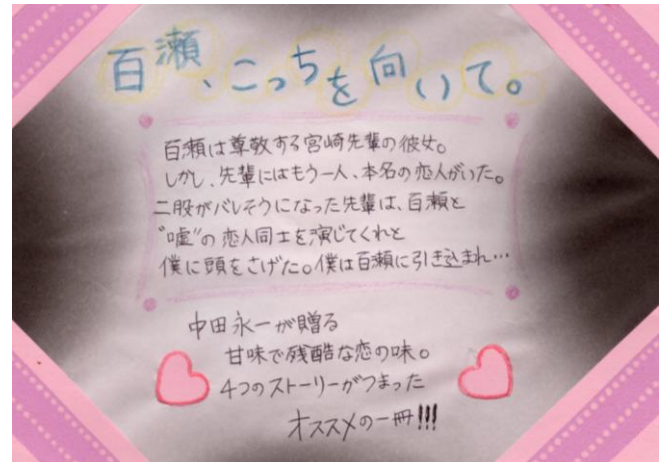 百瀬、こっちを向いて。
百瀬は尊敬する宮崎先輩の彼女。
しかし、先輩にはもう一人、本名の恋人がいた。
二股がバレそうになった先輩は、百瀬と
"嘘"の恋人同士を演じてくれと
僕に頭をさげた。僕は百瀬に引き込まれ…
中田永一が贈る
甘味で残酷な恋の味。
4つのストーリーがつまった
オススメの一冊!!!